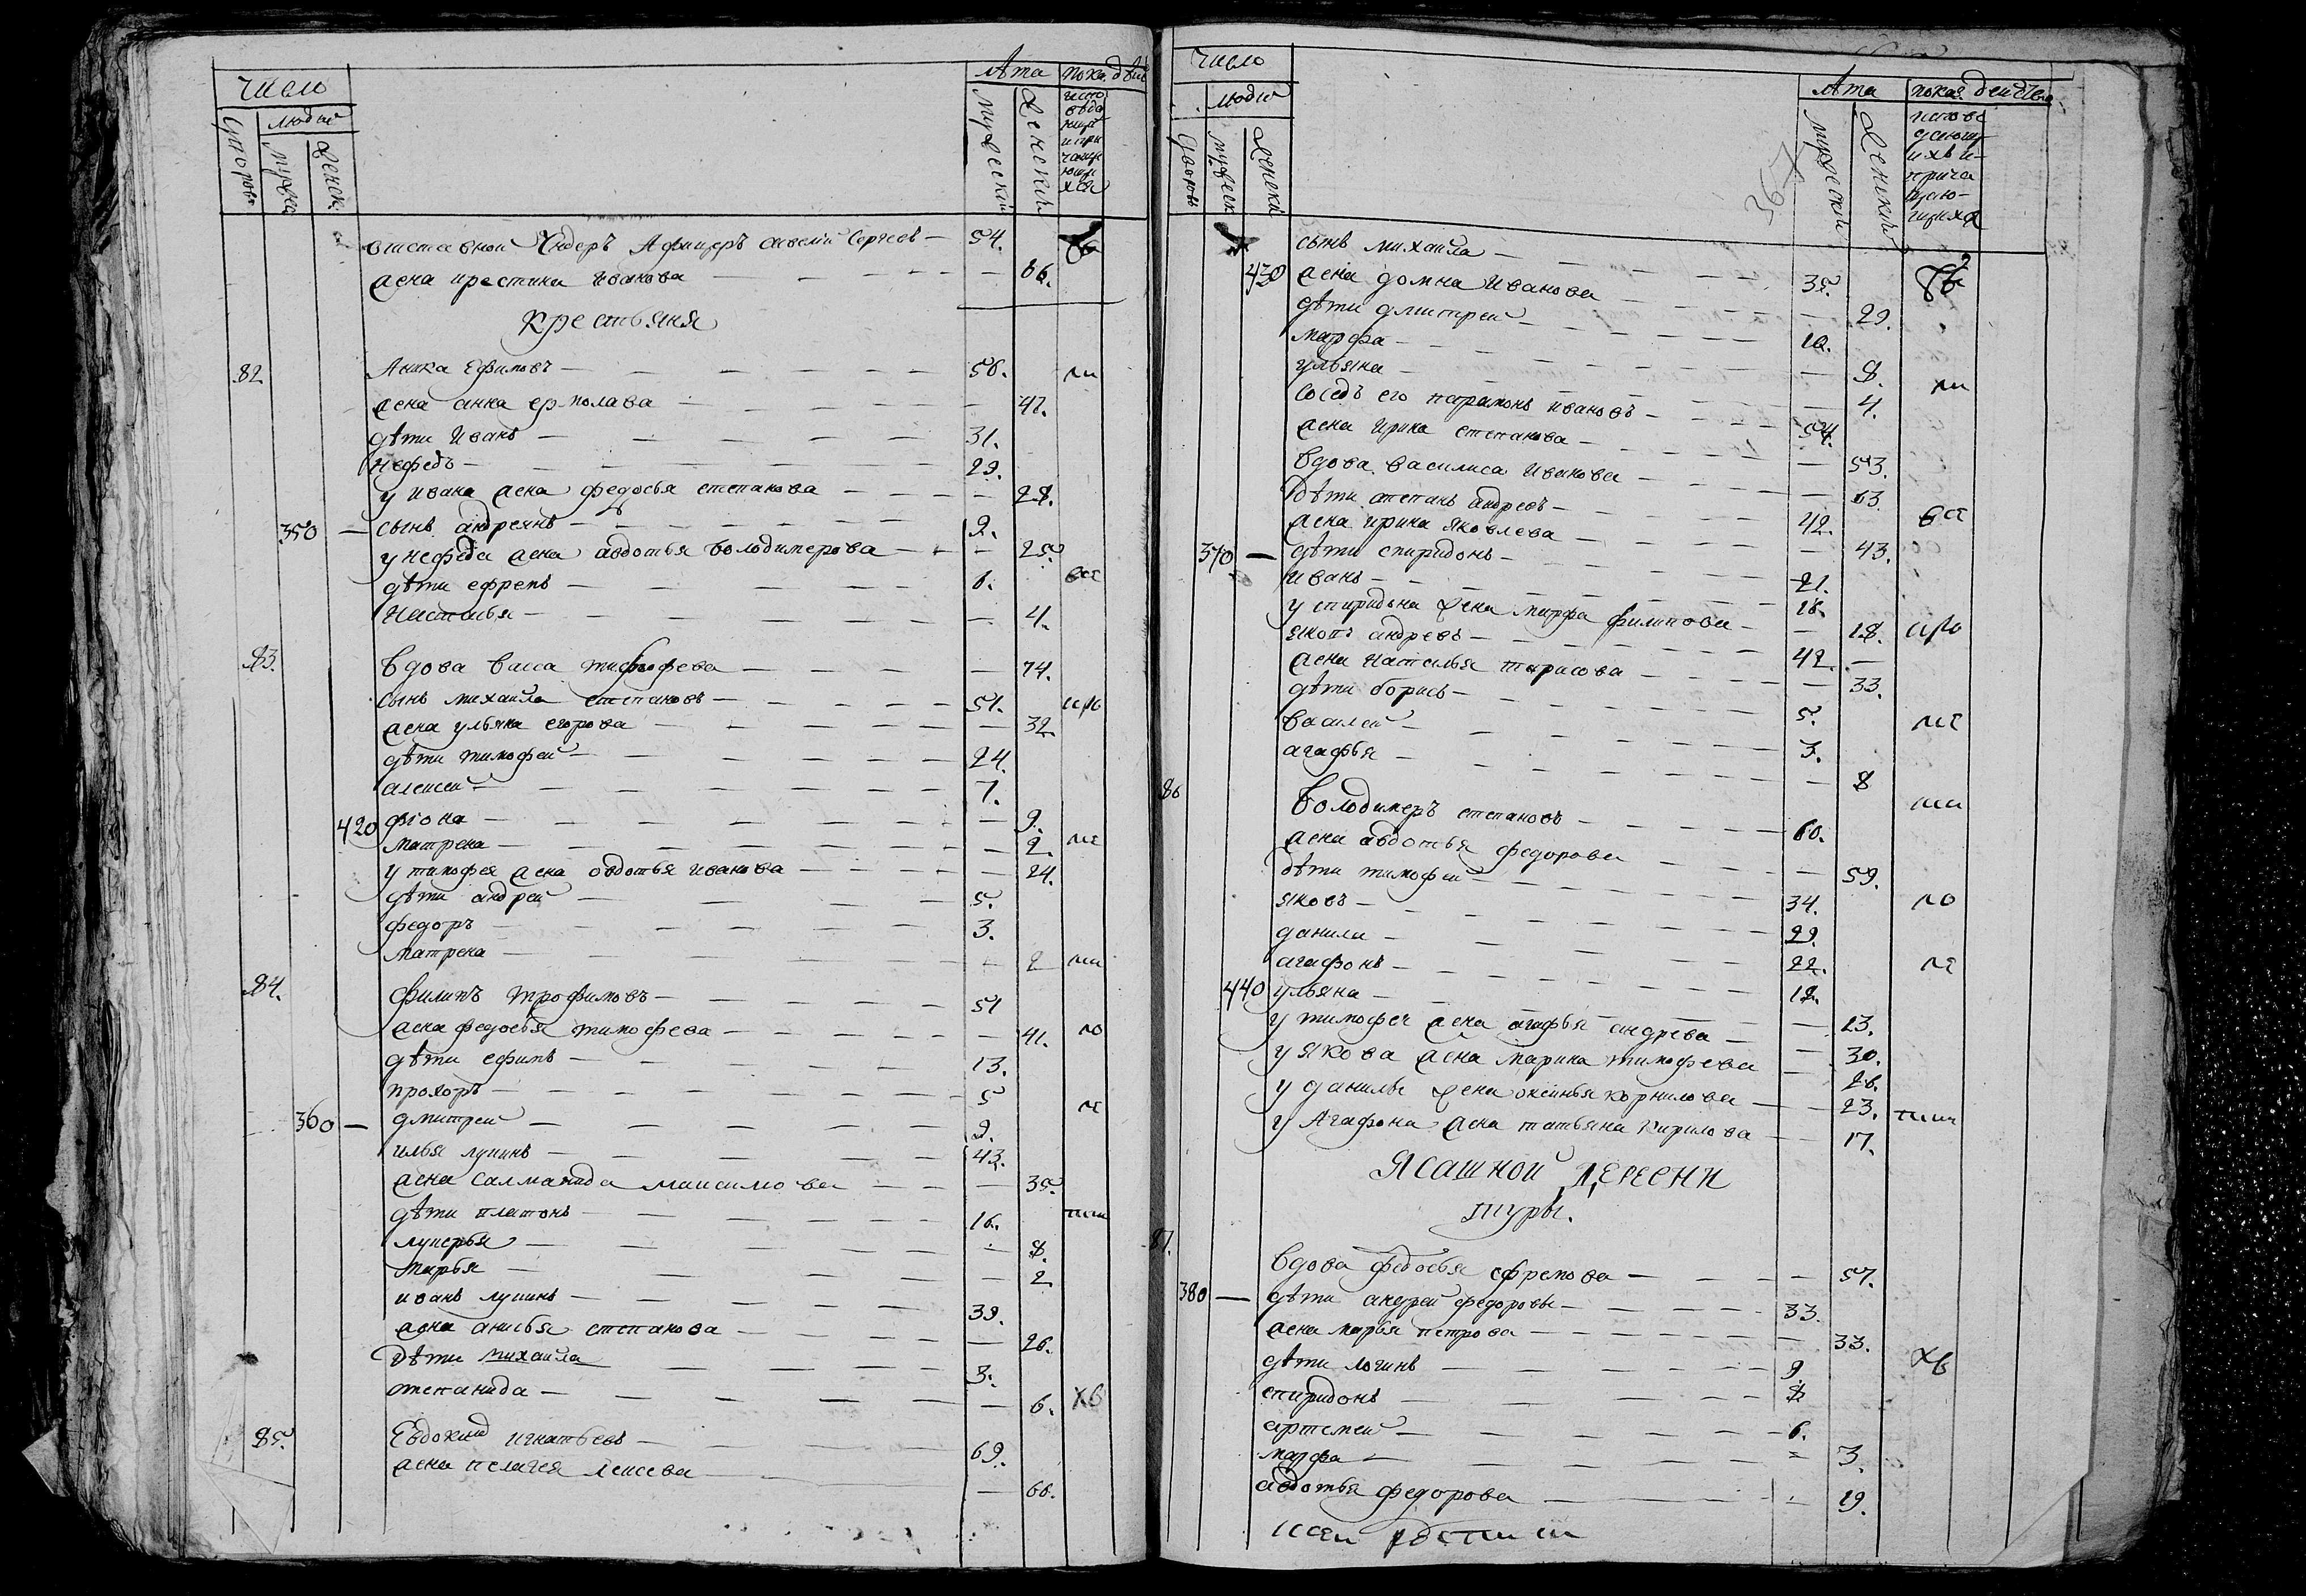 число
людей
дворовъ
мужеска
женск.
лѣта
мужескии
женскии
пока. дѣис
испо
вѣда
ющи
и при
чаща
ющи
хся
отставнои Ундеръ Афицеръ савелии Сергеевъ — 54.
жена крестина Иванова — 66.
Крестьяня
82. Аника Ефимовъ — 56.
жена анна ермолава — 47.
дѣти Иванъ — 31.
нефедъ — 29.
у ивана жена федосья степанова — 28.
350 — сынъ андреянъ — 9.
у нефеда жена авдотья володимерова — 25.
дѣти ефремъ — 6.
Настасья — 4.
83. вдова васса тимофева — 74.
сынъ михаила степановъ — 51.
жена ульяна егорова — 32
дѣти тимофеи — 24.
алексеи — 7.
420 фіона — 9.
матрена — 2.
у тимофея жена овдотья иванова — 24.
дѣти андреи — 5.
федоръ — 3.
матрена — 2
84. филипъ трофимовъ — 51
жена федосья тимофева — 41.
дѣти ефимъ — 13.
прохоръ — 5
360 — дмитреи — 2.
илья лукинъ — 43.
жена саломанида максимова — 35.
дѣти платонъ — 16.
лукерья — 8.
марья — 2.
иванъ лукинъ — 39.
жена анисья степанова — 26.
Дѣти михаила — 3.
степанида — 6.
85. Евдоким игнатьевъ — 69.
жена пелагея лексева — 66.
число
людеи
дворовъ
мужеск
женски
367
лѣта
мужескии
женскии
показ. деиства
испове
дающ
ихъ и
прича
щаю
щихся
сынъ михаила — 35.
430 жена домна Иванова — 29.
дѣти дмитреи — 10.
марфа — 8.
ульяна — 4.
соседъ его парамонъ ивановъ — 54.
жена ирина степанова — 53.
вдова василиса иванова — 63.
дѣти степанъ андревъ — 42.
жена ирина яковлева — 43.
370 — дѣти спиридонъ — 21.
иванъ — 18.
у спиридона жена марфа филипова — 18.
якопъ андревъ — 42.
жена наталья тарасова — 33.
дѣти борисъ — 5.
василеи — 3.
агафья — 8
86 володимеръ степановъ — 60.
жена авдотья федорова — 59.
дѣти тимофеи — 34.
яковъ — 29.
данила — 22.
агафонъ — 18.
440 ульяна — 13.
у тимофея жена агафья андрева — 30.
у якова жена марина тимофева — 26.
у данилы жена оксинья корнилова — 23.
у Агафона жена татьяна кирилова — 17.
Ясашнои деревни
туры.
87. вдова федосья ефремова — 57.
380 — дѣти андреи федоровъ — 33.
жена марья петрова — 33.
дѣти логинъ — 9
спиридонъ — 8
артемеи — 6.
марфа — 3.
авдотья федорова — 19.